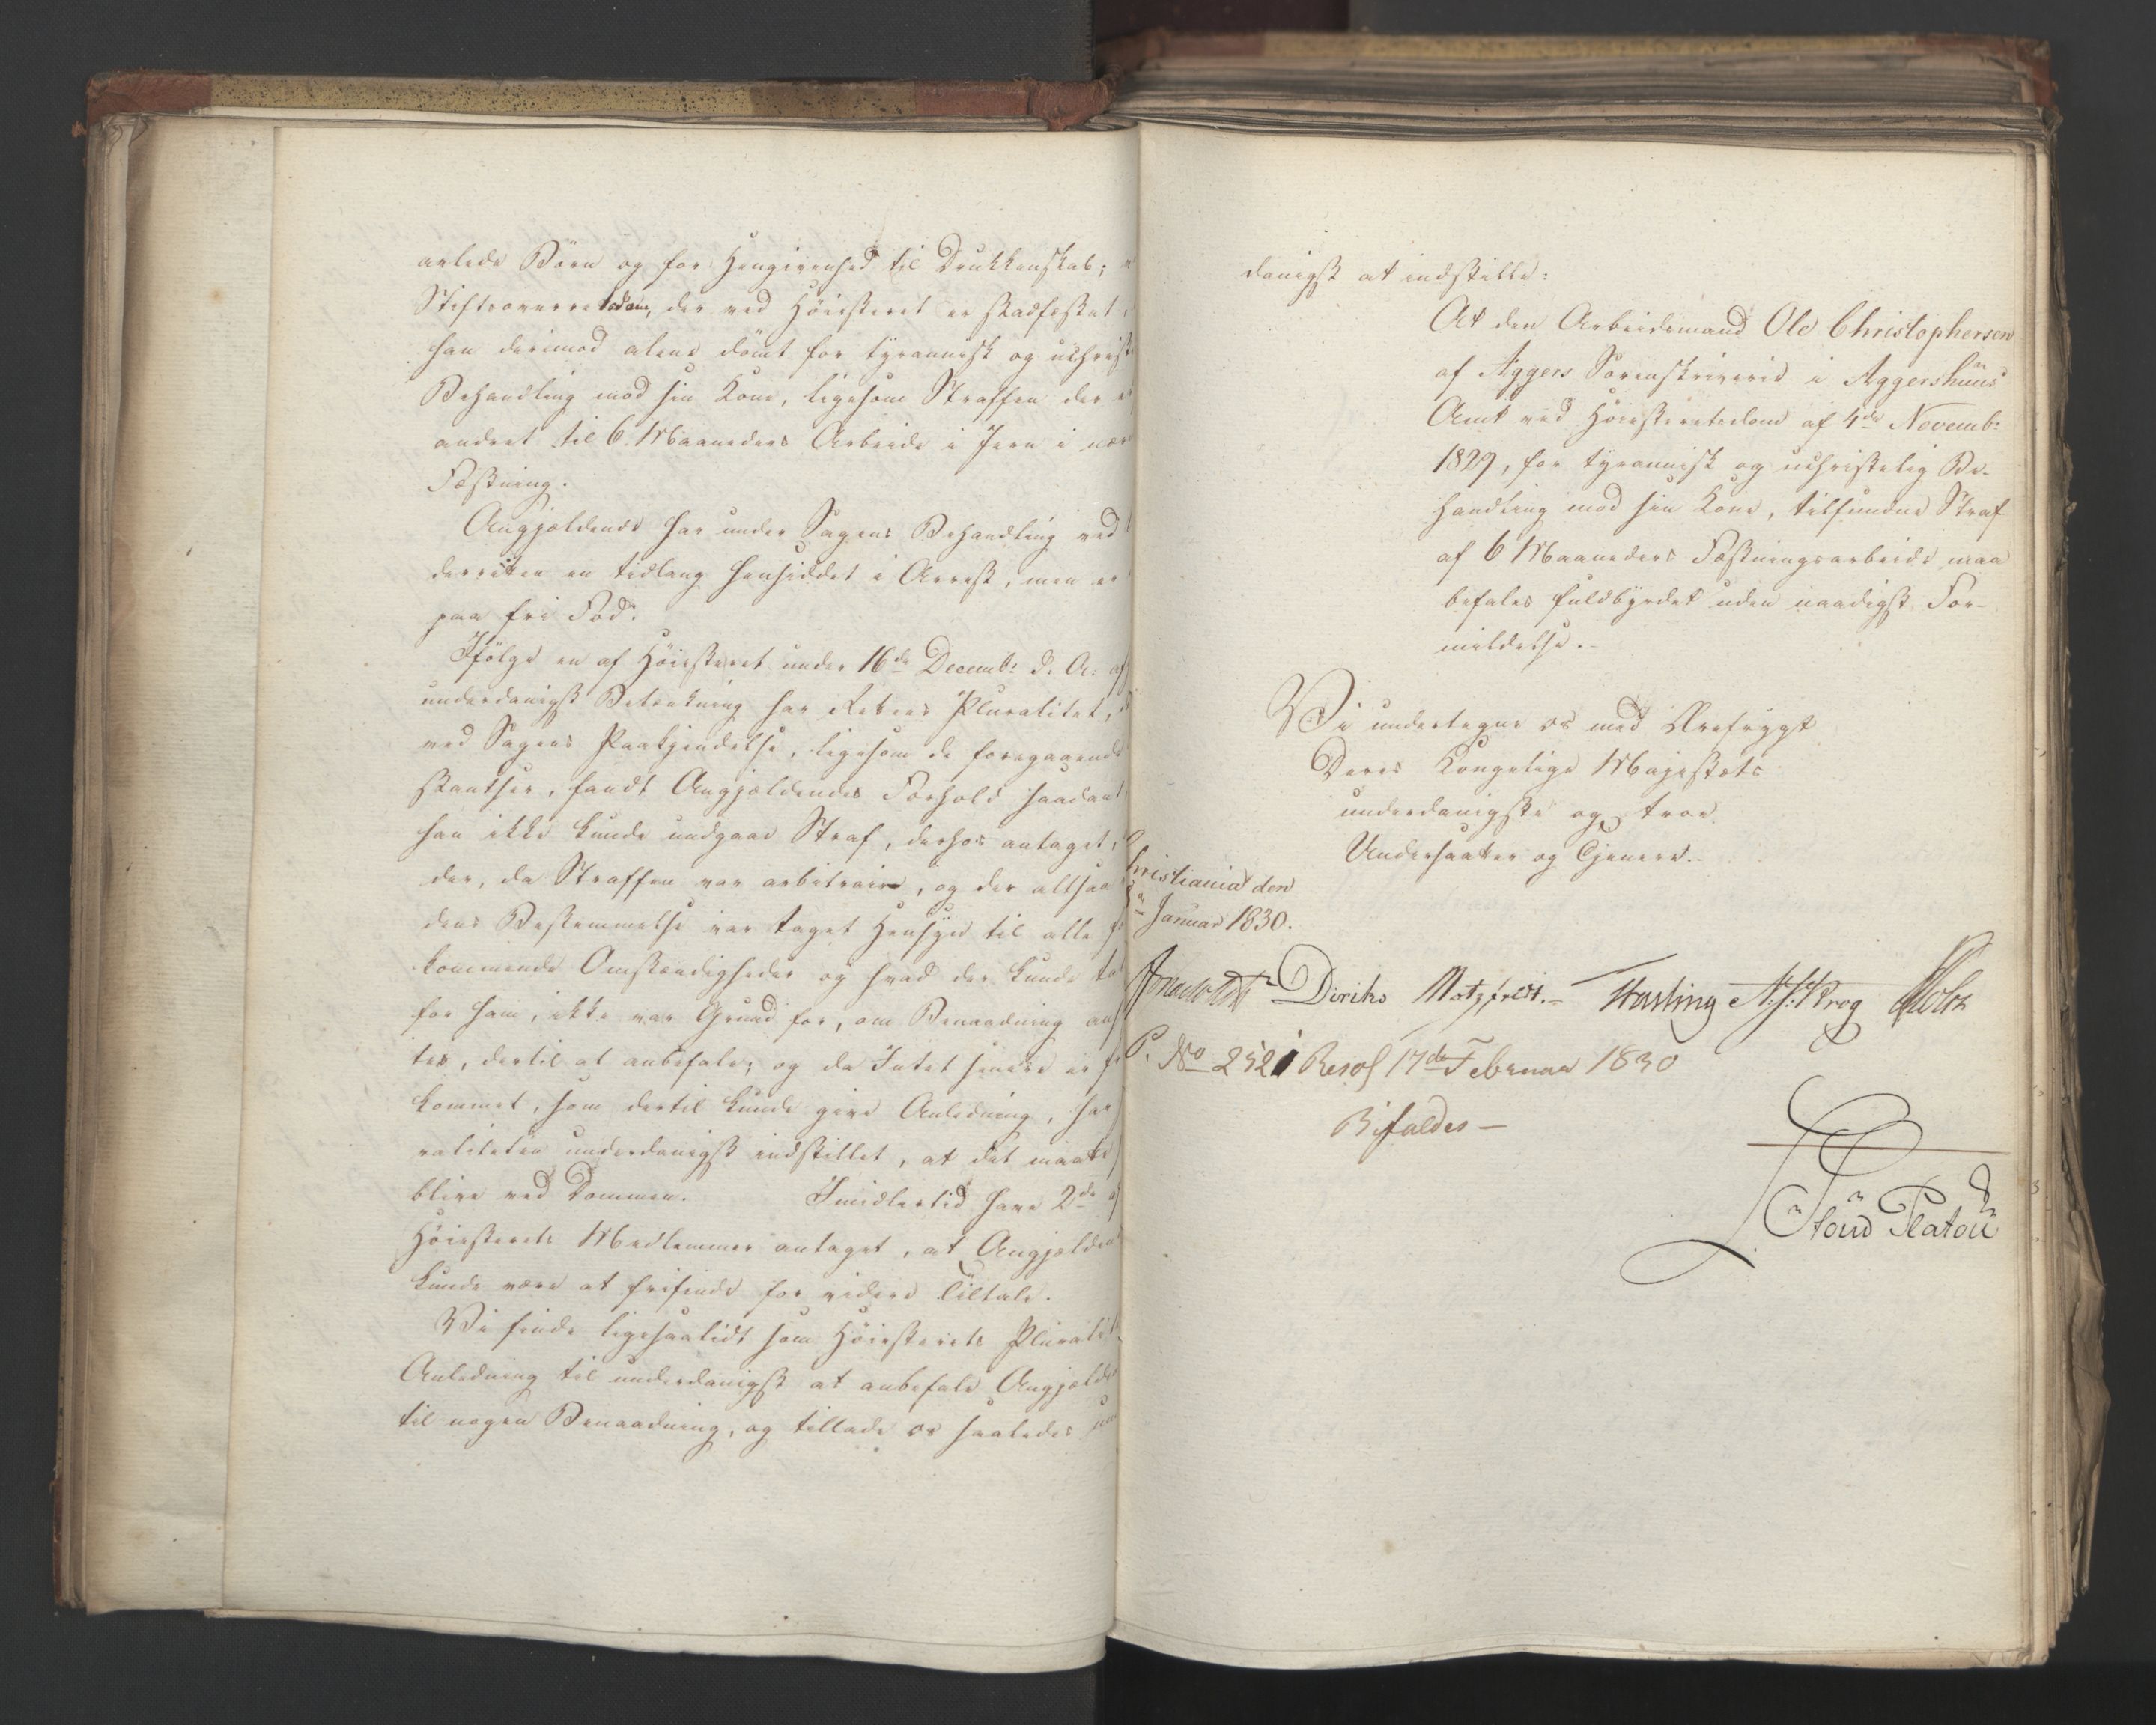 avlede Börn og for Hengivenhed til Drukkenskab;
Stiftsoverretsdom, der ved Höiesteret er stadfæstet,
han derimod alene dömt for tyrannisk og uchrist
Behandling mod sin Kone, ligesom Straffen der
andret til 6 Maaneders Arbeide i Jern i nær
Fæstning.
Angjældende har under Sagens Behandling ved
derretten en tidlang hensiddet i Arrest, men er
paa fri Fod.
Ifölge en af Höiesteret under 16de Decembr d. A. af
underdanigst Betænkning har Rettens Pluralitet,
ved Sagens Paakjendelse, ligesom de foregaaende
stantser, fandt Angjældendes Forhold saadant
han ikke kunde undgaae Straf, derhos antaget,
der, da Straffen var arbitrair, og der altsaa
dens Bestemmelse var taget Hensyn til alle
kommende Omstændigheder og hvad der kunde ta
for ham, ikke var Grund for, om Benaadning an
tes, dertil at anbefale; og da Intet senere er
kommet, som dertil kunde give Anledning, har
raliteten underdanigst indstillet, at det maatte
blive ved Dommen. Imidlertid have 2de af
Höiesterets Medlemmer antaget, at Angjælden
kunde være at frifinde for videre Tiltale.
Vi finde ligesaalidt som Höiesterets Pluralit
Anledning til underdanigst at anbefale Angjælde
til nogen Benaadning, og tillade os saaledes un
danigst at indstille:
At den Arbeidsmand Ole Christophersen
af Aggers Sorenskriverie i Aggershuus
Amt ved Höiesteretsdom af 4de Novembr
1829, for tyrannisk og uchristelig Be-
handling mod sin Kone, tilfundne Straf
af 6 Maaneders Fæstningsarbeide maa
befales fuldbyrdet uden naadigst For-
mildelse.
Vi undertegne os med Ærefrygt
Deres Kongelige Majestæts
underdanigste og troe
Undersaatter og Tjenere.
hristiania den
Januar 1830.
Diriks Motzfeldt. Fasting N. J. Krog Holst
P. No 2521 Resol 17de Februar 1830
Bifaldes
Stoud Platou